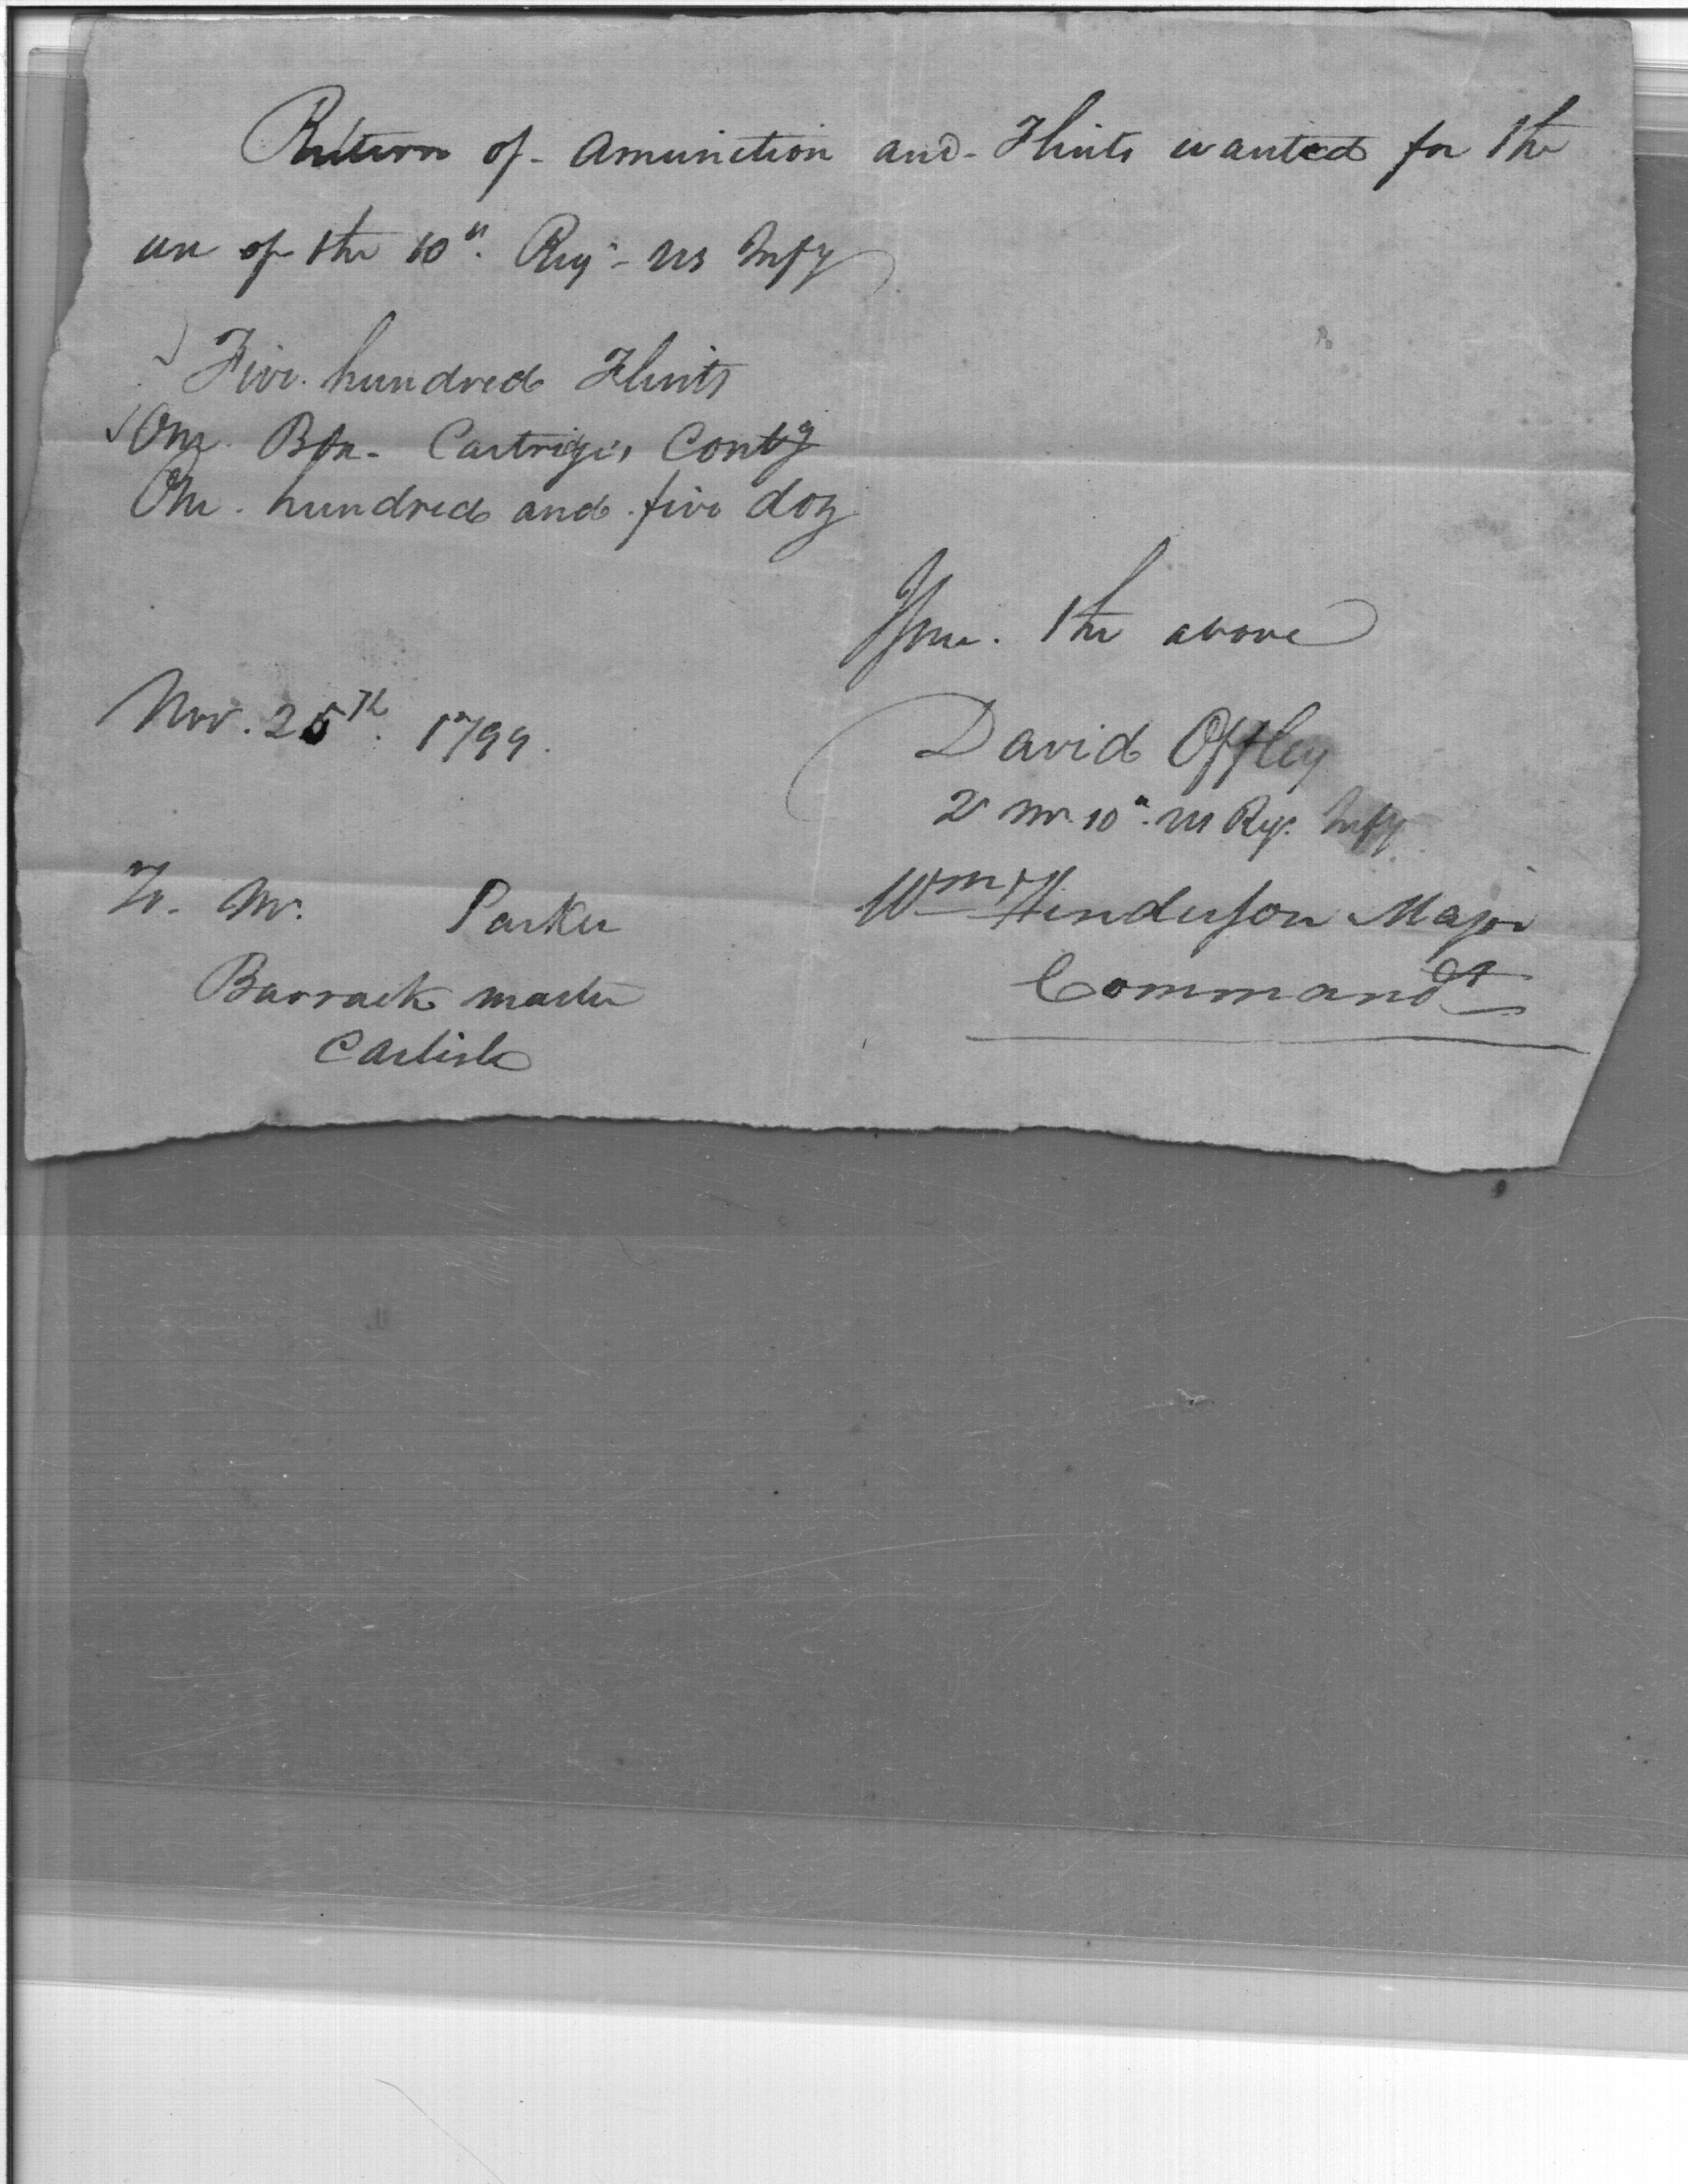 Return of Amunition and Flints wanted for the
use of the 10th Regt US Infy
Five hundred Flints
One Box Cartriges Contg
One hundred and five doz
Issue the above
Nov. 25th 1799.
David Offley
Qr Mr 10th US Reg. Infy
To Mr. Parker
Barrack master
Carlisle
Wm Henderson Major
Commandt